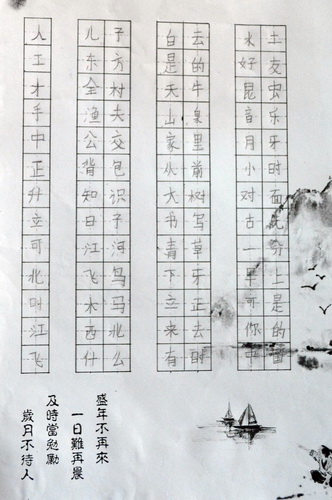 人
工
才
手
中
正
升
立
可
北
叫
江
飞
儿子
东方
全村
渔夫
公交
背包
知识
日子
江河
飞鸟
木马
西北
什么
白云
是的
天牛
山泉
家里
从前
大树
书写
青草
下牙
立正
来去
有时
水土
好友
昆虫
音乐
月牙
小时
对面
古
一
早上
可是
你的
中
盛年不再來
一日難再晨
及時當勉勵
歲月不待人